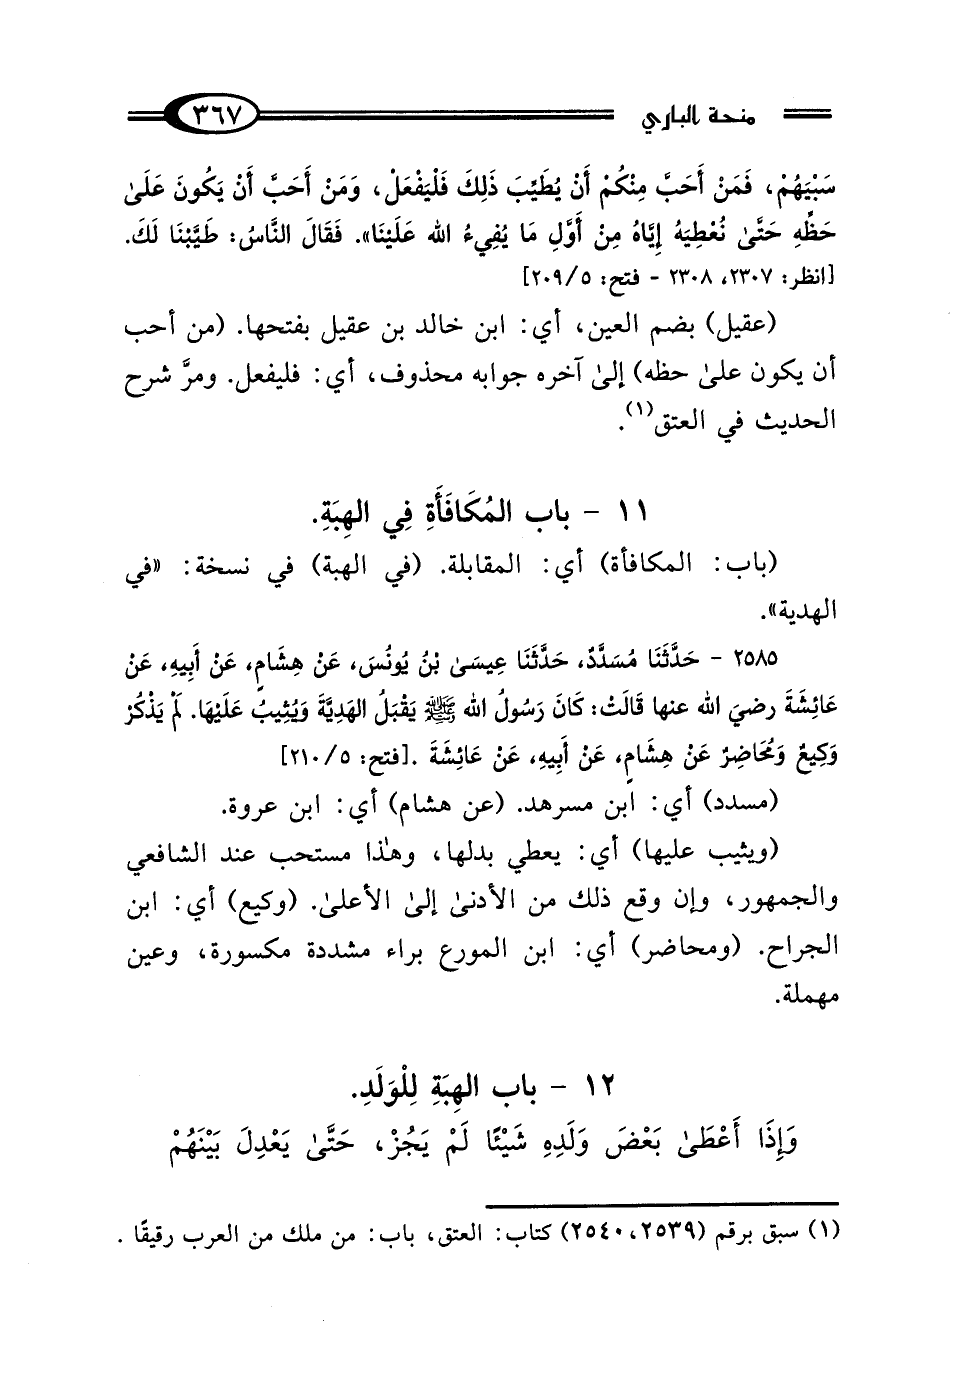 منحة الباري ٣٦٧
سَبْيَهُمْ، فَمَنْ أَحَبَّ مِنْكُمْ أَنْ يُطَيِّبَ ذَلِكَ فَلْيَفْعَلْ، وَمَنْ أَحَبَّ أَنْ يَكُونَ عَلَىٰ
حَظِّهِ حَتَّىٰ نُعْطِيَهُ إِيَّاهُ مِنْ أَوَّلِ مَا يُفِيءُ الله عَلَيْنَا». فَقَالَ النَّاسُ: طَيَّبْنَا لَكَ.
[انظر: ٢٣٠٧، ٢٣٠٨ - فتح: ٥/ ٢٠٩]
(عقيل) بضم العين، أي: ابن خالد بن عقيل بفتحها. (من أحب
أن يكون علىٰ حظه) إلىٰ آخره جوابه محذوف، أي: فليفعل. ومرَّ شرح
الحديث في العتق(١).
١١ - باب المُكَافَأَةِ فِي الهِبَةِ.
(باب: المكافأة) أي: المقابلة. (في الهبة) في نسخة: «في
الهدية».
٢٥٨٥ - حَدَّثَنَا مُسَدَّدٌ، حَدَّثَنَا عِيسَىٰ بْنُ يُونُسَ، عَنْ هِشَامٍ، عَنْ أَبِيهِ، عَنْ
عَائِشَةَ رضيَ الله عنها قَالَتْ: كَانَ رَسُولُ الله ﷺ يَقْبَلُ الهَدِيَّةَ وَيُثِيبُ عَلَيْهَا. لَمْ يَذْكُرْ
وَكِيعٌ وَمُحَاضِرٌ عَنْ هِشَامٍ، عَنْ أَبِيهِ، عَنْ عَائِشَةَ .[فتح: ٥/ ٢١٠]
(مسدد) أي: ابن مسرهد. (عن هشام) أي: ابن عروة.
(ويثيب عليها) أي: يعطي بدلها، وهٰذا مستحب عند الشافعي
والجمهور، وإن وقع ذلك من الأدنىٰ إلىٰ الأعلىٰ. (وكيع) أي: ابن
الجراح. (ومحاضر) أي: ابن المورع براء مشددة مكسورة، وعين
مهملة.
١٢ - باب الهِبَةِ لِلْوَلَدِ.
وَإِذَا أَعْطَىٰ بَعْضَ وَلَدِهِ شَيْئًا لَمْ يَجُزْ، حَتَّىٰ يَعْدِلَ بَيْنَهُمْ
(١) سبق برقم (٢٥٣٩، ٢٥٤٠) كتاب: العتق، باب: من ملك من العرب رقيقًا .